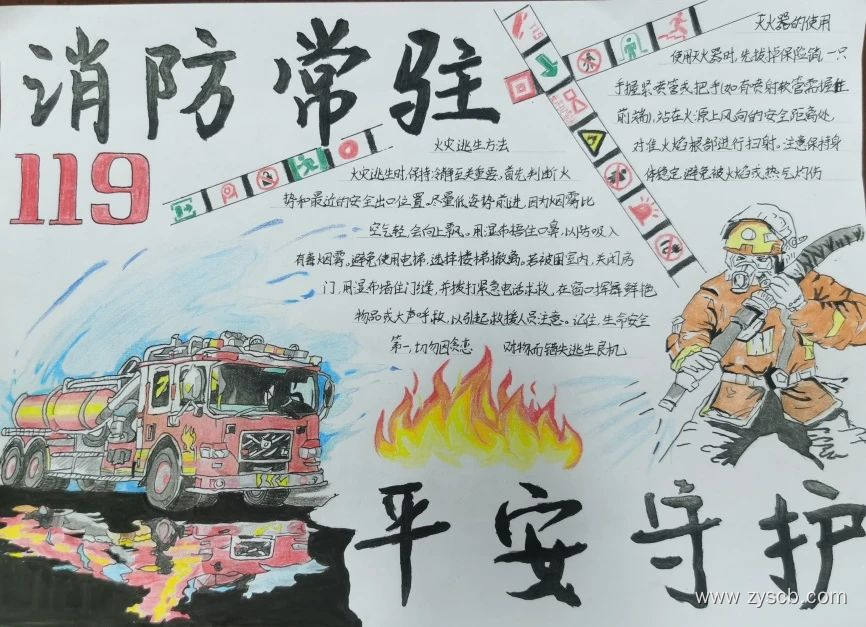 消防常驻
119
火灾逃生方法
火灾逃生时,保持冷静至关重要。首先,判断火
势和最近的安全出口位置。尽量低姿势前进,因为烟雾比
空气轻,会向上飘。用湿布捂住口鼻,以防吸入
有毒烟雾。避免使用电梯,选择楼梯撤离。若被困室内,关闭房
门,用湿布堵住门缝,并拨打紧急电话求救,在窗口挥舞鲜艳
物品或大声呼救,以引起救援人员注意。记住,生命安全
第一,切勿因贪恋 财物而错失逃生良机
灭火器的使用
使用灭火器时,先拔掉保险销,一只
手握紧喷管,另 把手(如有喷射软管需握住
前端),站在火源上风向的安全距离处,
对准火焰根部进行扫射。注意保持身
体稳定,避免被火焰或热气灼伤
平安守护
www.zyscb.com